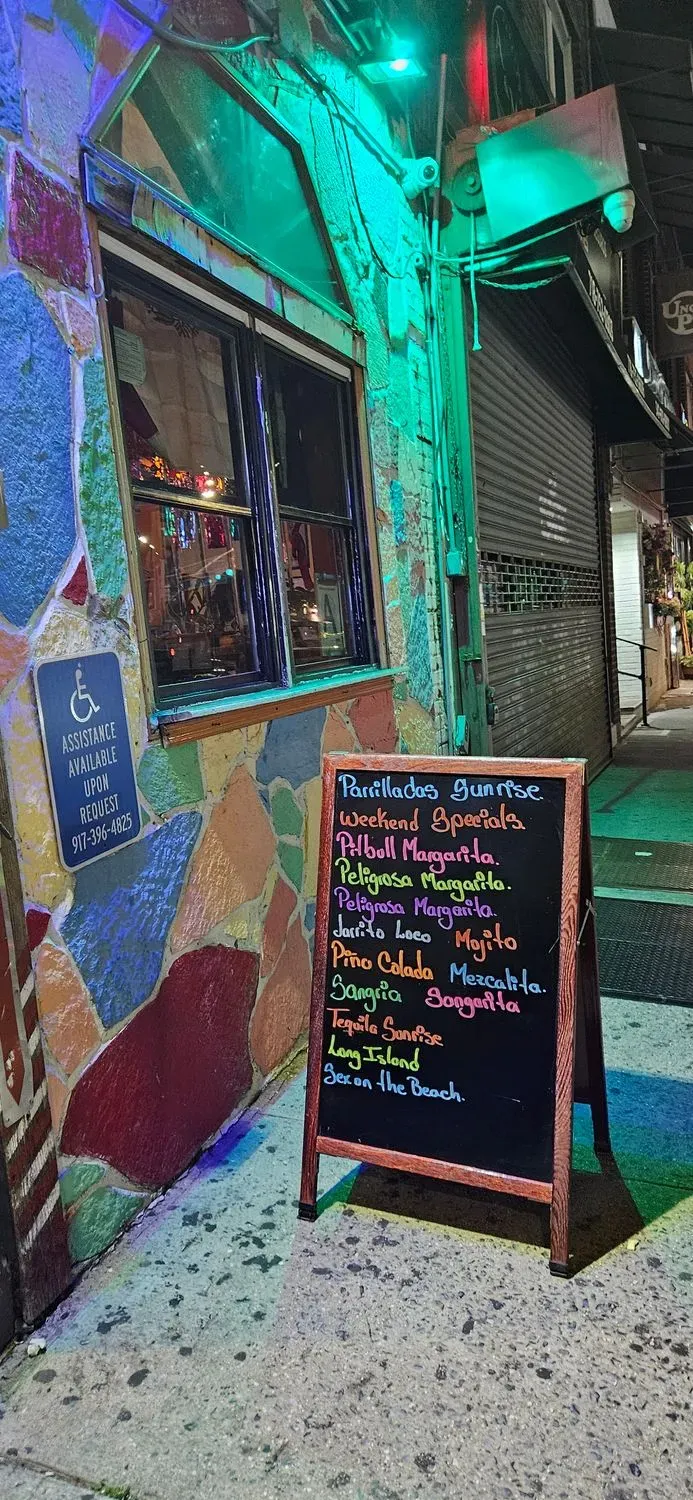 Parrilladas Sunrise.
Weekend Specials
Pitbull Margarita.
Peligrosa Margarita.
Peligrosa Margarita.
Jarrito Loco Mojito
Pino Colada Mezcalita.
Sangria Songarita
Tequila Sunrise
Long Island
Sex on the Beach.
ASSISTANCE
AVAILABLE
UPON
REQUEST
917-396-4825